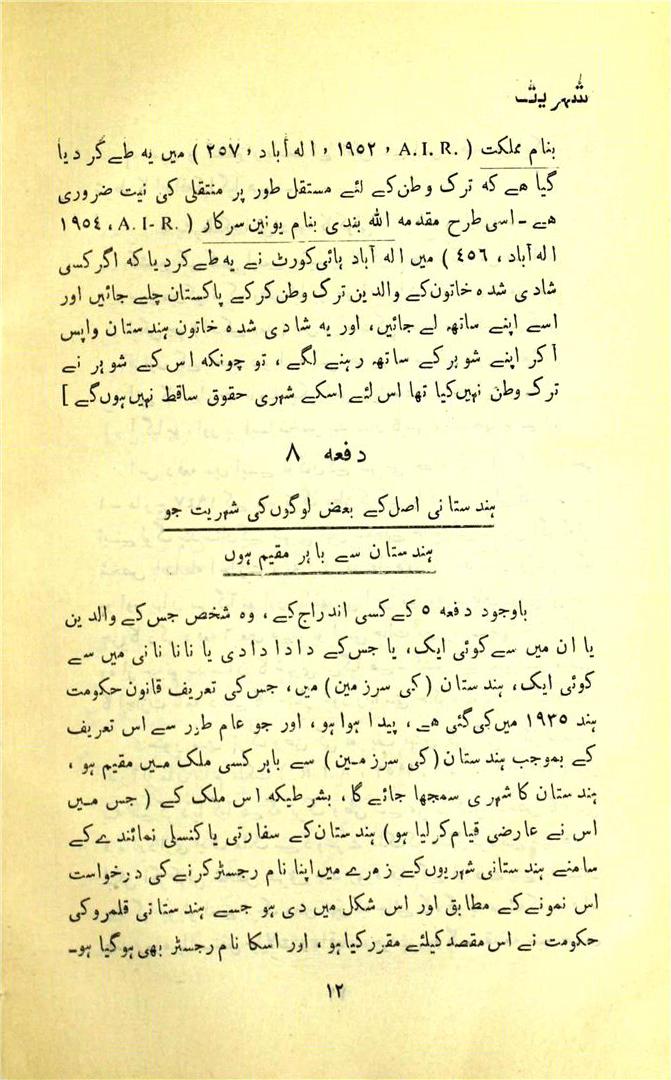 شہریت
بنام مملکت ( A. I. R. ، ۱۹۵۲ ، الہ آباد ، ۲۵۷ ) میں یہ طے کر دیا
گیا ہے کہ ترک وطن کے لئے مستقل طور پر منتقلی کی نیت ضروری
ہے ۔ اسی طرح مقدمہ اللہ بندی بنام یونین سرکار ( A. I- R. ، ۱۹۵٤
الہ آباد ، ٤۵٦ ) میں الہ آباد ہائی کورٹ نے یہ طے کر دیا کہ اگر کسی
شادی شدہ خاتون کے والدین ترک وطن کر کے پاکستان چلے جائیں اور
اسے اپنے ساتھ لے جائیں ، اور یہ شادی شدہ خاتون ہندستان واپس
آکر اپنے شوہر کے ساتھ رہنے لگے ، تو چونکہ اس کے شوہر نے
ترک وطن نہیں کیا تھا اس لئے اسکے شہری حقوق ساقط نہیں ہوں گے ]
دفعہ ۸
ہندستانی اصل کے بعض لوگوں کی شہریت جو
ہندستان سے باہر مقیم ہوں
باوجود دفعہ ۵ کے کسی اندراج کے ، وہ شخص جس کے والدین
یا ان میں سے کوئی ایک ، یا جس کے دادا دادی یا نانا نانی میں سے
کوئی ایک ، ہندستان ( کی سرزمین ) میں ، جس کی تعریف قانون حکومت
ہند ۱۹۳۵ میں کی گئی ہے ، پیدا ہوا ہو ، اور جو عام طور سے اس تعریف
کے بموجب ہندستان ( کی سرزمین ) سے باہر کسی ملک میں مقیم ہو ،
ہندستان کا شہری سمجھا جائے گا ، بشرطیکہ اس ملک کے ( جس میں
اس نے عارضی قیام کر لیا ہو ) ہندستان کے سفارتی یا کنسلی نمائندے کے
سامنے ہندستانی شہریوں کے زمرے میں اپنا نام رجسٹر کرنے کی درخواست
اس نمونے کے مطابق اور اس شکل میں دی ہو جسے ہندستانی قلمرو کی
حکومت نے اس مقصد کیلئے مقرر کیا ہو ، اور اسکا نام رجسٹر بھی ہو گیا ہو ۔
۱۲